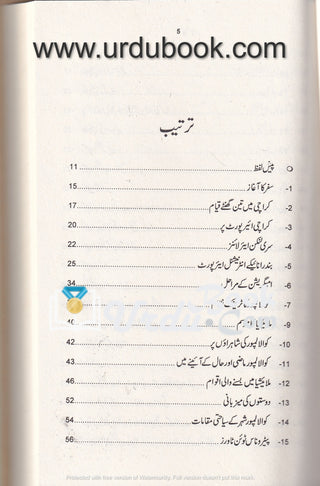 5
www.urdubook.com
ترتیب
○ پیش لفظ 11
1- سفر کا آغاز 15
2- کراچی میں تین گھنٹے قیام 17
3- کراچی ائیرپورٹ پر 20
4- سری لنکن ائیرلائنز 22
5- بندرانائیکے انٹرنیشنل ائیرپورٹ 25
6- امیگریشن کے مراحل 34
9- 40
10- کوالالمپور کی شاہراؤں پر 42
11- کوالالمپور ماضی اور حال کے آئینے میں 43
12- ملائیشیا میں بسنے والی اقوام 46
13- دوستوں کی میزبانی 52
14- کوالالمپور شہر کے سیاحتی مقامات 54
15- پیٹروناس ٹوئن ٹاورز 56
Protected with free version of Watermarkly. Full version doesn't put this mark.